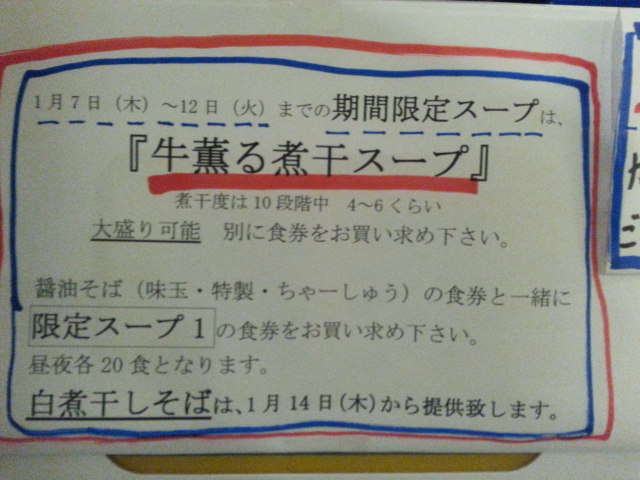 1月7日（木）～12日（火）までの期間限定スープは、
『牛薫る煮干スープ』
煮干度は10段階中　4～6くらい
大盛り可能　別に食券をお買い求め下さい。
醤油そば（味玉・特製・ちゃーしゅう）の食券と一緒に
限定スープ1の食券をお買い求め下さい。
昼夜各20食となります。
白煮干しそばは、1月14日(木)から提供致します。